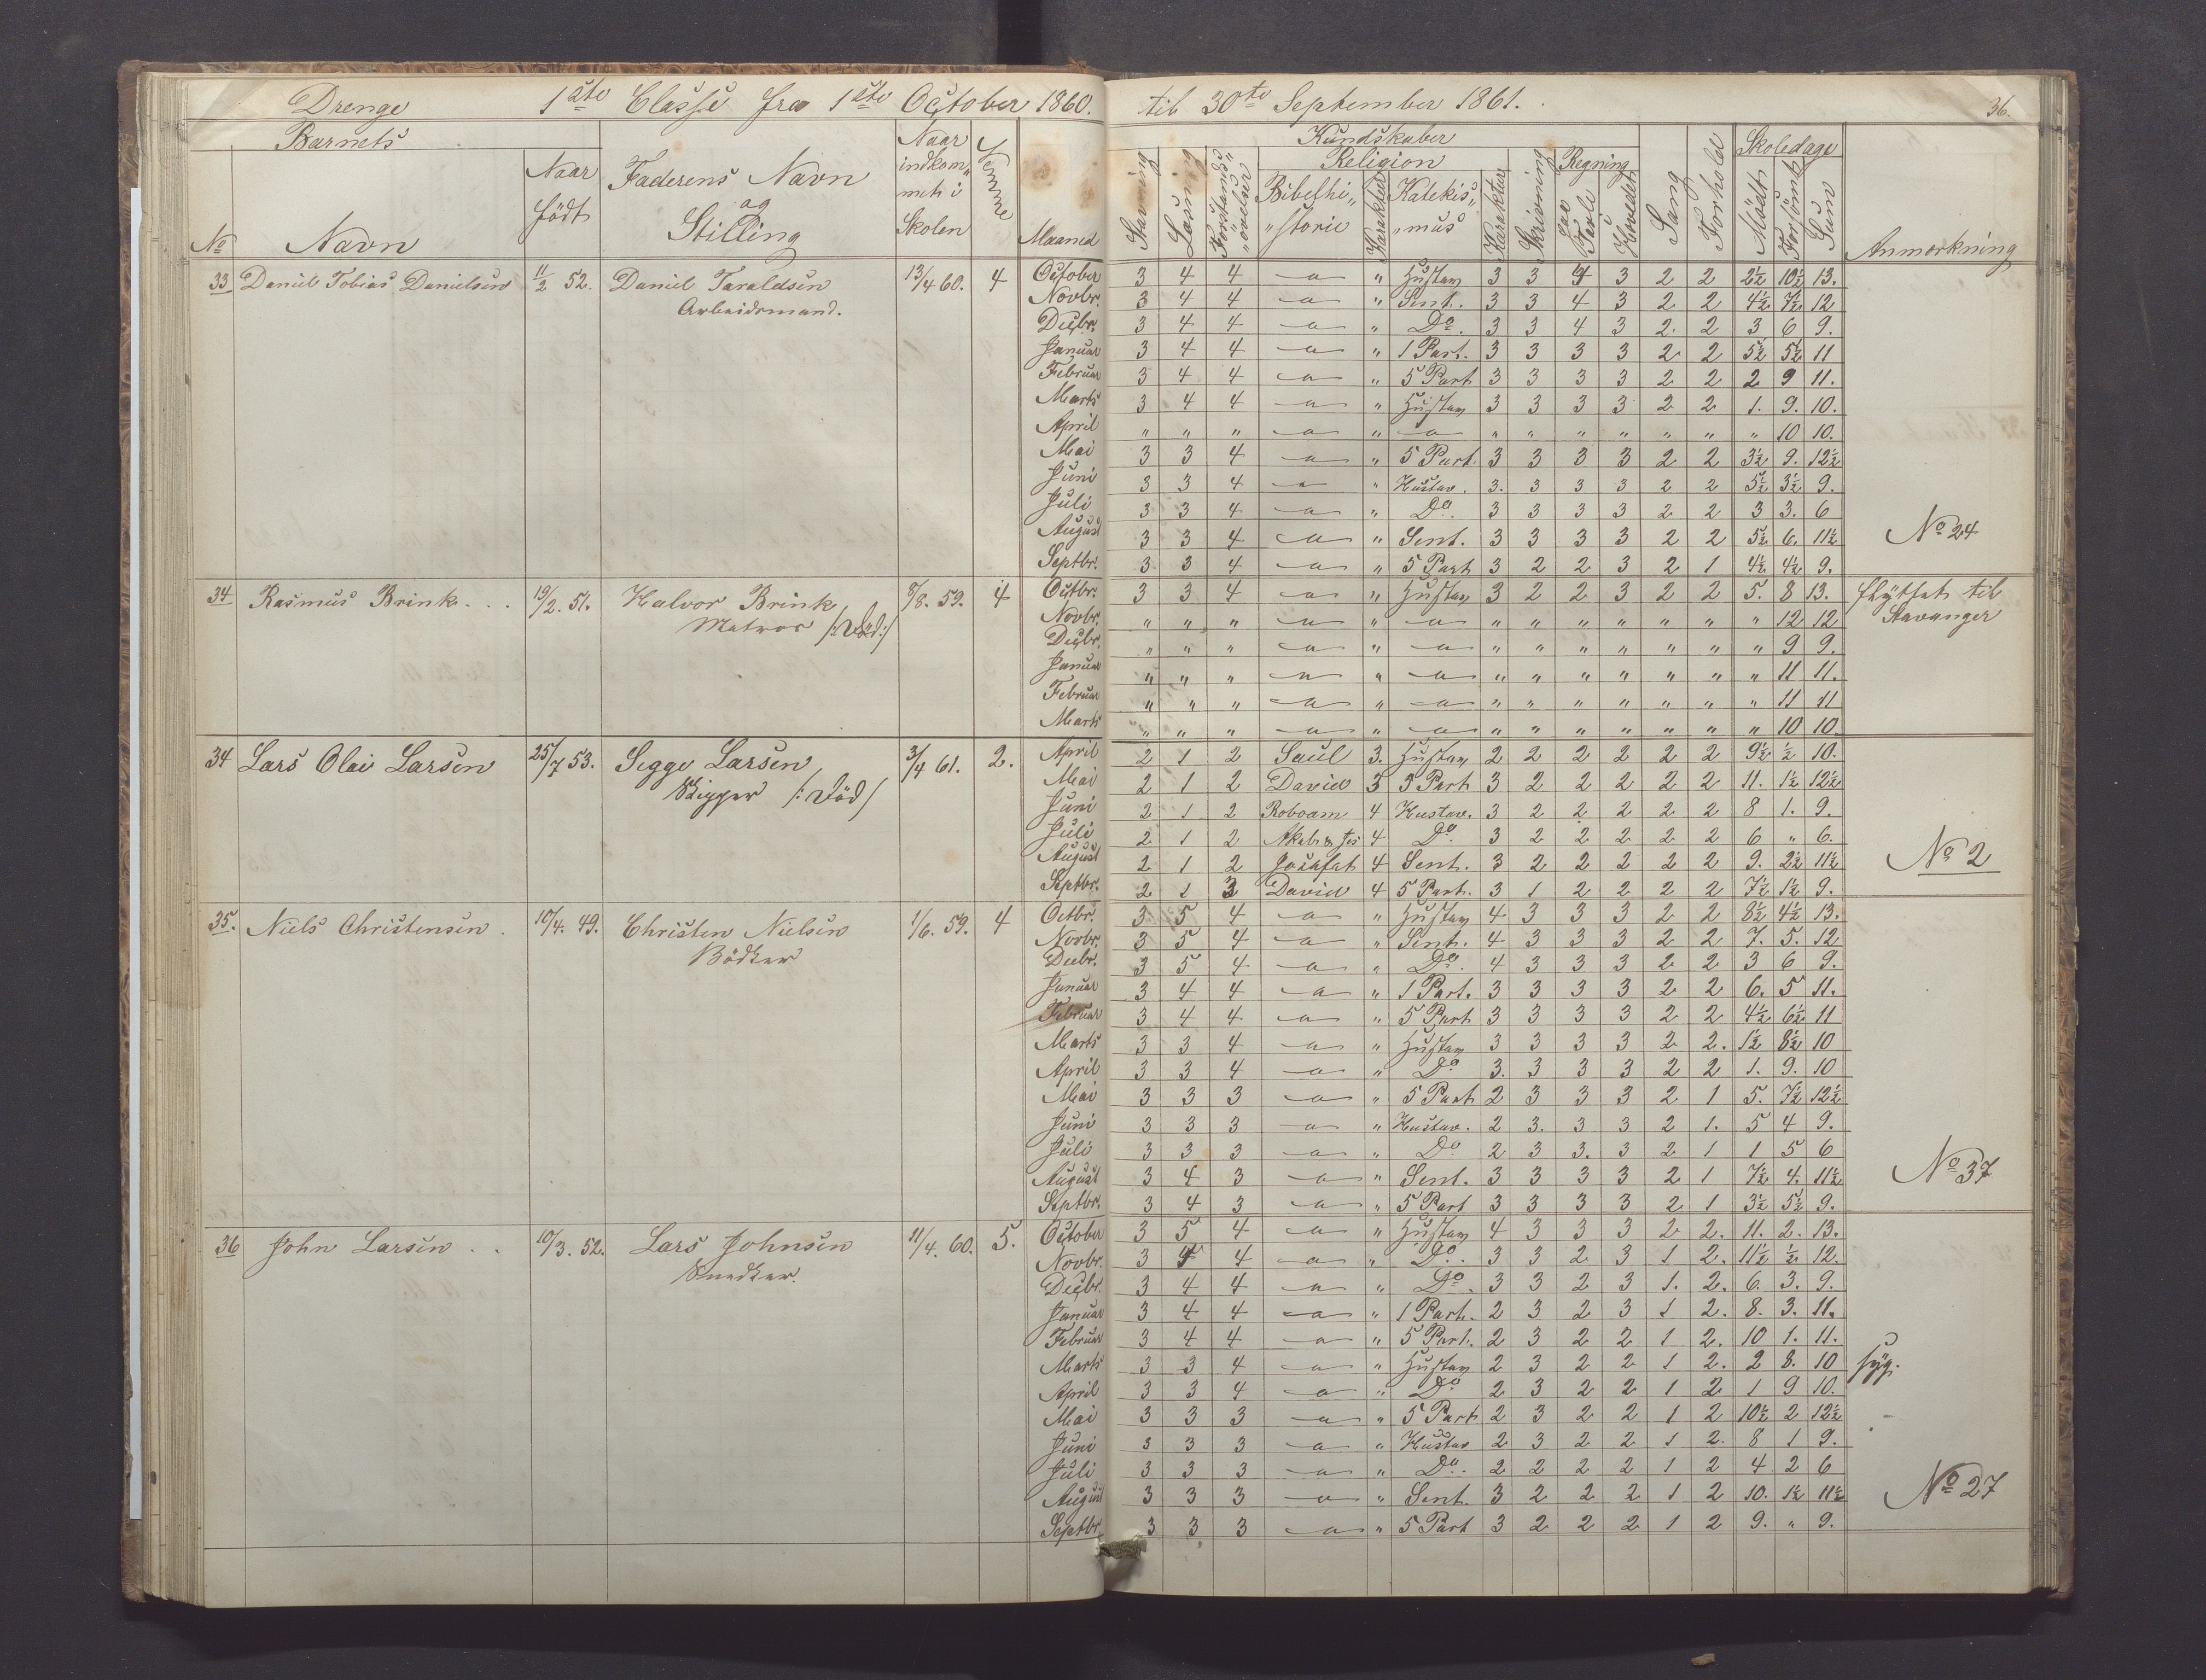 Drenge 1ste Classe fra 1ste October 1860. til 30te September 1861. 36.
Barnets Naar indkom„ met i Skolen Nemme Maaned Kundskaber Skoledage
No Navn Naar født Faderens Navn og Stilling Stavning Læsning Forstands„ øvelser Religion Bibelhi„ „storie Karakter Katekis„ „mus Karakter Skrivning Regning Paa Tavle I Hovedet Sang Forhold Mödt Forsömt Sum Anmærkning
33 Daniel Tobias Danielsen 11/2 52. Daniel Taraldsen 13/4 60. 4 October 3 4 4 — „ Hustav 3 3 4 3 2 2 2½ 10½ 13.
Arbeidsmand. Novbr. 3 4 4 — „ Sent. 3 3 4 3 2 2 4½ 7½ 12
Decbr. 3 4 4 — „ Do. 3 3 4 3 2 2 3 6 9.
Januar 3 4 4 — „ 1 Part. 3 3 3 3 2 2 5½ 5½ 11
Februar 3 4 4 — „ 5 Part 3 3 3 3 2 2 2 9 11.
Marts 3 4 4 — „ Hustav 3 3 3 3 2 2 1. 9. 10.
April „ „ „ — „ — „ „ „ „ „ „ „ 10 10.
Mai 3 3 4 — „ 5 Part. 3 3 3 3 2 2 3½ 9. 12½
Juni 3 3 4 — „ Hustav. 3. 3 3 3 2 2 5½ 3½ 9.
Juli 3 3 4 — „ Do. 3 3 3 3 2 2 3 3. 6
August 3 3 4 — „ Sent. 3 3 3 3 2 2 5½ 6. 11½ No 24
Septbr. 3 3 4 — „ 5 Part 3 2 2 3 2 1 4½ 4½ 9.
34 Rasmus Brink . . . 19/2. 51. Halvor Brink, 8/8. 59. 4 Octbr. 3 3 4 — „ Hustav 3 2 2 3 2 2 5. 8 13. flyttet til
Matros /:död:/ Novbr. „ „ „ — „ — „ „ „ „ „ „ „ 12 12 Stavanger
Decbr. „ „ „ — „ — „ „ „ „ „ „ „ 9 9.
Januar „ „ „ — „ — „ „ „ „ „ „ „ 11 11.
Februar „ „ „ — „ — „ „ „ „ „ „ „ 11 11
Marts „ „ „ — „ — „ „ „ „ „ „ „ 10 10.
34 Lars Olai Larsen 25/7 53. Segge Larsen, 3/4 61. 2. April 2 1 2 Saul 3. Hustav 2 2 2 2 2 2 9½ ½ 10.
Skipper /:död/ Mai 2 1 2 David 3 5 Part 3 2 2 2 2 2 11. 1½ 12½
Juni 2 1 2 Roboam 4 Hustav. 3 2 2 2 2 2 8 1. 9.
Juli 2 1 2 4 Do. 3 2 2 2 2 2 6 „ 6.
August 2 1 2 Josafat 4 Sent. 3 2 2 2 2 2 9. 2½ 11½ No 2
Septbr. 2 1 3 David 4 5 Part. 3 1 2 2 2 2 7½ 1½ 9.
35. Niels Christensen . 10/4. 49. Christen Nielsen 1/6. 59. 4 Octbr. 3 5 4 — „ Hustav 4 3 3 3 2 2 8½ 4½ 13.
Bödker Novbr. 3 5 4 — „ Sent. 4 3 3 3 2 2 7. 5. 12
Decbr. 3 5 4 — „ Do. 4 3 3 3 2 2 3 6 9.
Januar 3 4 4 — „ 1 Part. 3 3 3 3 2 2 6. 5 11.
Februar 3 4 4 — „ 5 Part 3 3 3 3 2 2 4½ 6½ 11
Marts 3 3 4 — „ Hustav 3 3 3 3 2 2. 1½ 8½ 10
April 3 3 4 — „ Do 3. 3 3 3 2 2 1. 9. 10
Mai 3 3 3 — „ 5 Part 2 3 3 3 2 1 5. 7½ 12½
Juni 3 3 3 — „ Hustav. 2 3. 3 3 2 1. 5 4 9.
Juli 3 3 3 — „ Do 2 3 3. 3 2 1 1 5 6
August 3 4 3 — „ Sent. 3 3 3 3 2 1 7½ 4. 11½ No 37
Septbr. 3 4 3 — „ 5 Part 3 3 3 3 2 1 3½ 5½ 9.
36 John Larsen . . 10/3. 52. Lars Johnsen 11/4. 60. 5. October 3 5 4 — „ Hustav 4 3 3 3 2 2. 11. 2. 13.
Snedker. Novbr. 3 4 4 — „ Do. 3 3 2 3 1 2. 11½ ½ 12.
Decbr. 3 4 4 — „ Do. 3 3 2 3 1. 2. 6. 3. 9.
Januar 3 4 4 — „ 1 Part. 2 3 2 3 1 2. 8. 3. 11.
Februar 3 4 4 — „ 5 Part. 2 3 2 2 1 2. 10 1. 11.
Marts 3 3 4 — „ Hustav 2 3 2 2 1 2. 2 8. 10 syg.
April 3 3 4 — „ Do 2 3 2 2 1 2 1 9 10.
Mai 3 3 3 — „ 5 Part 2 3 2 2 1 2 10½ 2 12½
Juni 3 3 3 — „ Hustav 2 3 2 2 1 2. 8 1 9.
Juli 3 3 3 — „ Do. 2 2 2 2 1 2 4 2 6
August 3 3 3 — „ Sent. 3 2 2 2 1 2 10. 1½ 11½ No 27
Septbr. 3 3 3 — „ 5 Part 3 2 2 2 1 2 9. „ 9.